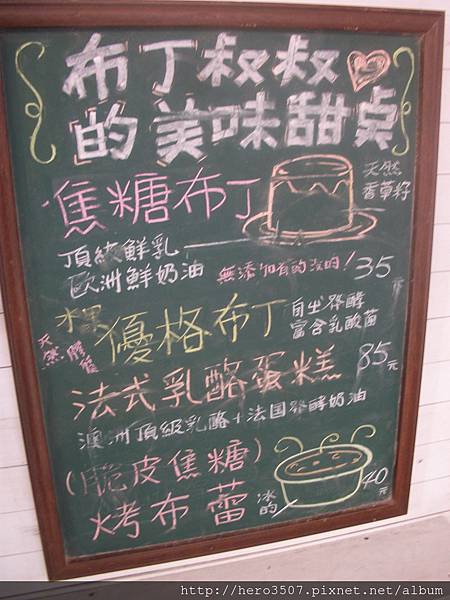 布丁叔叔
的美味甜点
焦糖布丁
天然
香草籽
頂級鮮乳
歐洲鮮奶油
無添加有的沒的！35元
水果
優格布丁
自出發酵
富含乳酸菌
天然
膠質
法式乳酪蛋糕 85元
澳洲頂級乳酪+法国發酵奶油
(脆皮焦糖)
烤布蕾
冰的
40元
http://hero3507.pixnet.net/album